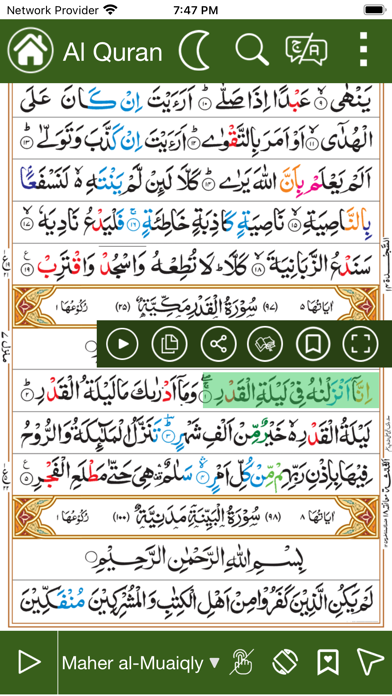 Network Provider 7:47 PM
Al Quran
يَنْهٰى ۙ۹ عَبْدًا اِذَا صَلّٰى ؕ۱۰ اَرَءَيْتَ اِنْ كَانَ عَلَى
الْهُدٰٓى ۙ۱۱ اَوْ اَمَرَ بِالتَّقْوٰى ؕ۱۲ اَرَءَيْتَ اِنْ كَذَّبَ وَتَوَلّٰى ؕ۱۳
اَلَمْ يَعْلَمْ بِاَنَّ اللّٰهَ يَرٰى ؕ۱۴ كَلَّا لَئِنْ لَّمْ يَنْتَهِ ۙ۬ لَنَسْفَعًا
بِالنَّاصِيَةِ ۙ۱۵ نَاصِيَةٍ كَاذِبَةٍ خَاطِئَةٍ ۚ۱۶ فَلْيَدْعُ نَادِيَهٗ ۙ۱۷
سَنَدْعُ الزَّبَانِيَةَ ۙ۱۸ كَلَّا ؕ لَا تُطِعْهُ وَاسْجُدْ وَاقْتَرِبْ ۱۹
اٰيَاتُهَا ۵ (۹۷) سُوْرَةُ الْقَدْرِ مَكِّيَّةٌ (۲۵) رُكُوْعُهَا ۱
اِنَّآ اَنْزَلْنٰهُ فِيْ لَيْلَةِ الْقَدْرِ ۚۖ۱ وَمَآ اَدْرٰىكَ مَا لَيْلَةُ الْقَدْرِ ؕ۲
لَيْلَةُ الْقَدْرِ ۙ۬ خَيْرٌ مِّنْ اَلْفِ شَهْرٍ ؕ۳ تَنَزَّلُ الْمَلٰٓئِكَةُ وَالرُّوْحُ
فِيْهَا بِاِذْنِ رَبِّهِمْ ۚ مِنْ كُلِّ اَمْرٍ ۙۛ۴ سَلٰمٌ ۛ۫ هِيَ حَتّٰى مَطْلَعِ الْفَجْرِ ۵
اٰيَاتُهَا ۸ (۹۸) سُوْرَةُ الْبَيِّنَةِ مَدَنِيَّةٌ (۱۰۰) رُكُوْعُهَا ۱
بِسْمِ اللّٰهِ الرَّحْمٰنِ الرَّحِيْمِ
لَمْ يَكُنِ الَّذِيْنَ كَفَرُوْا مِنْ اَهْلِ الْكِتٰبِ وَالْمُشْرِكِيْنَ مُنْفَكِّيْنَ
Maher al-Muaiqly